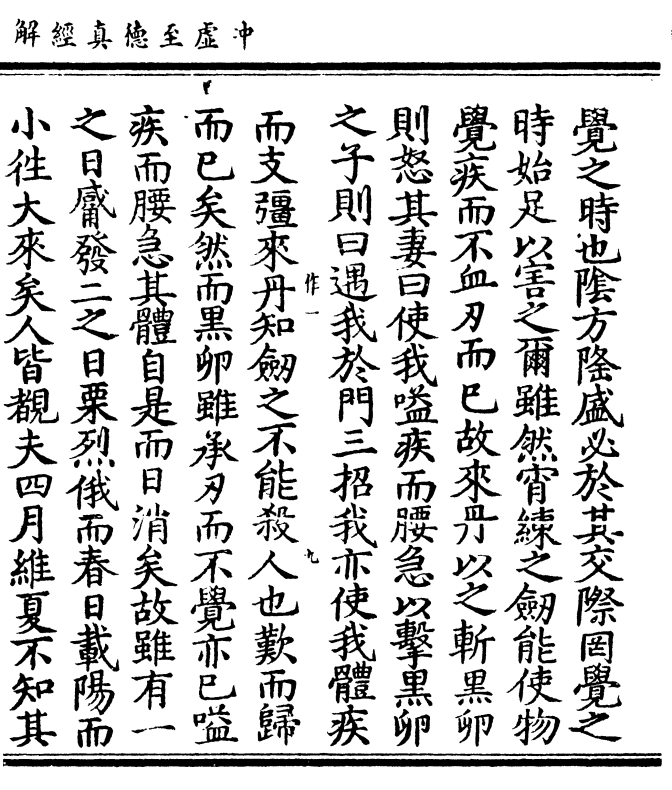 冲虛至德真經解
覺之時也陰方隆盛必於其交際罔覺之
時始足以害之爾雖然宵練之劒能使物
覺疾而不血刃而已故來丹以之斬黑卵
則怒其妻曰使我嗌疾而腰急以擊黑卵
之子則曰遇我於門三招我亦使我體疾
作一
而支彊來丹知劒之不能殺人也歎而歸
九
而已矣然而黑卵雖承刃而不覺亦已嗌
疾而腰急其體自是而日消矣故雖有一
之日觱發二之日栗烈俄而春日載陽而
小徃大來矣人皆覩夫四月維夏不知其